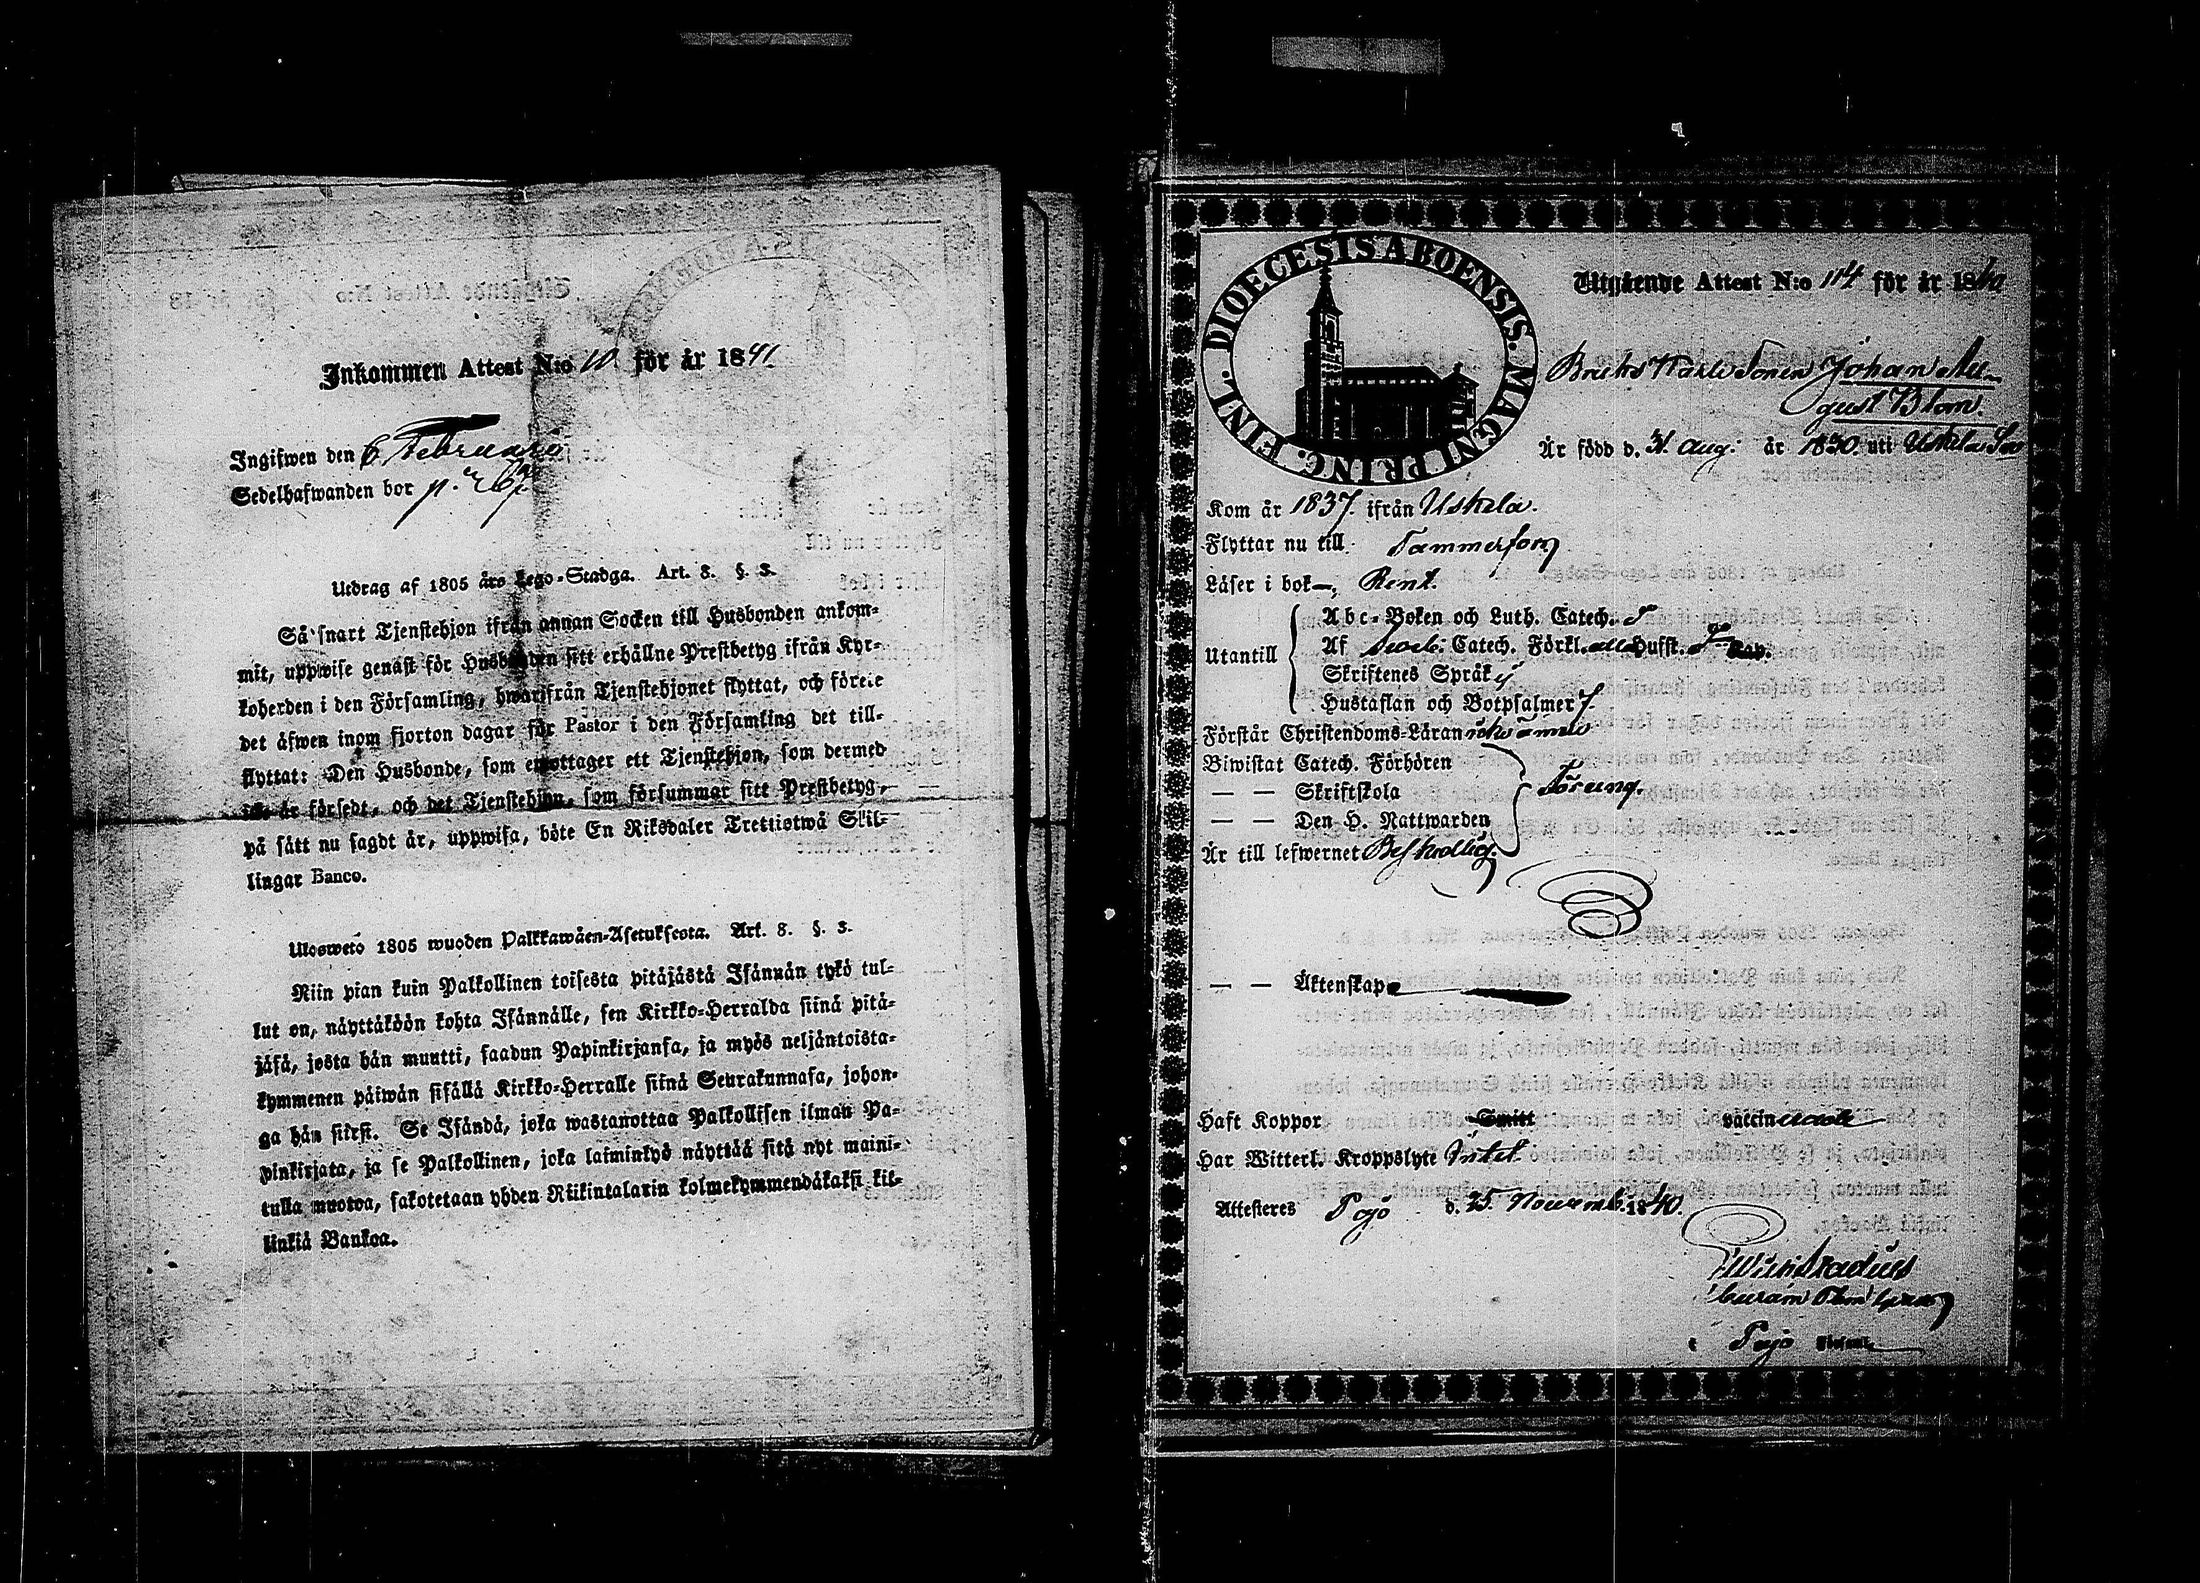 Inkommen Attest N:o 10 för år 1841
Ingifwen den 6 Februarii
Sedelhafwanden bor p.
Utdrag af 1805 års Lego-Stadga. Art. 8. §. 3.
Så snart Tjenstehjon ifrån annan Socken till Husbonden ankom-
mit, uppwise genast för Husbonden sitt erhållne Prestbetyg ifrån Kyr-
koherden i den Församling, hwarifrån Tjenstehjonet flyttat, och förete
det äfwen inom fjorton dagar för Pastor i den Församling det till-
flyttat: Den Husbonde, som emottager ett Tjenstehjon, som dermed
är försedt, och det Tjenstehjon, som försummar sitt Prestbetyg,
på sätt nu sagdt är, uppwisa, böte En Riksdaler Trettiotwå Skil-
lingar Banco.
Ulosweto 1805 wuoden Palkkawäen-Asetuksesta. Art. 8. §. 3.
Niin pian kuin Palkollinen toisesta pitäjästä Isännän tykö tul-
lut on, näyttäköön kohta Isännälle, sen Kirkko-Herralda siinä pitä-
jäsä, josta hän muutti, saadun Papinkirjansa, ja myös neljäntoista-
kymmenen päiwän sisällä Kirkko-Herralle siinä Seurakunnasa, johon-
ga hän siirsi. Se Isändä, joka wastanottaa Palkollisen ilman Pa-
pinkirjata, ja se Palkollinen, joka laiminlyö näyttää sitä nyt maini-
tulla muotoa, sakotetaan yhden Riikintalarin kolmekymmendäkaksi kil-
linkiä Bankoa.
DIOECESIS ABOENSIS. MAGNI PRINC. FINL.
Utgående Attest N:o 114 för år 1840
Bruks Karls Sonen Johan Au-
gust Blom.
Är född d. 31 Aug: år 1830. uti Uskela Sn
Kom år 1837. ifrån Uskela.
Flyttar nu till Tammerfors
Läser i bok—, Rent.
Utantill
Abc-Boken och Luth. Catech.
Af Catech. Förkl. Hufst. Kap.
Skriftenes Språk
Hustaflan och Botpsalmer
Förstår Christendoms-Läran
Biwistat Catech. Förhören
— — Skriftskola
— — Den H. Nattwarden
För ung.
Är till lefwernet Beskedlig.
— — Äktenskap
Haft Koppor Smitt vaccinerade
Har Witterl. Kroppslyte Intet.
Attesteres Pojo d. 25. Novemb. 1840.
Pojo